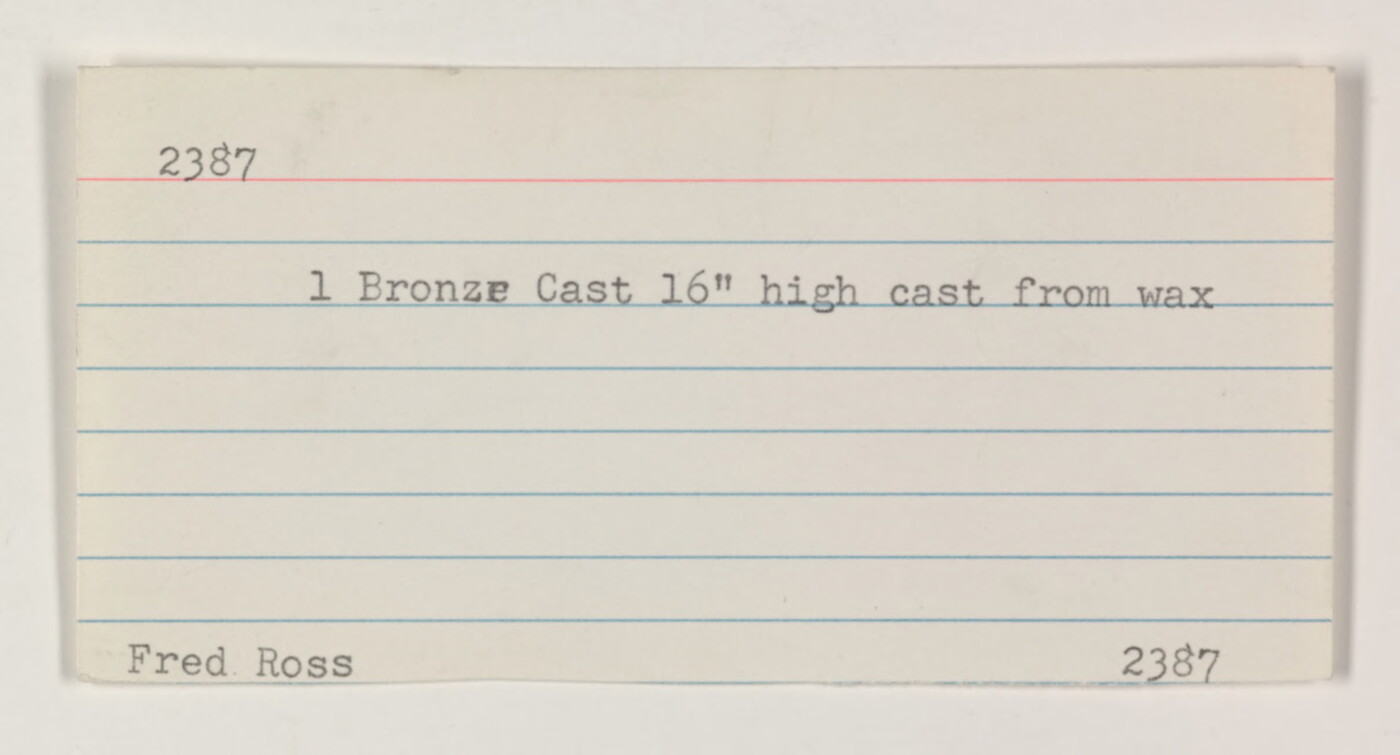 2387
1 Bronze Cast 16" high cast from wax
Fred Ross 2387